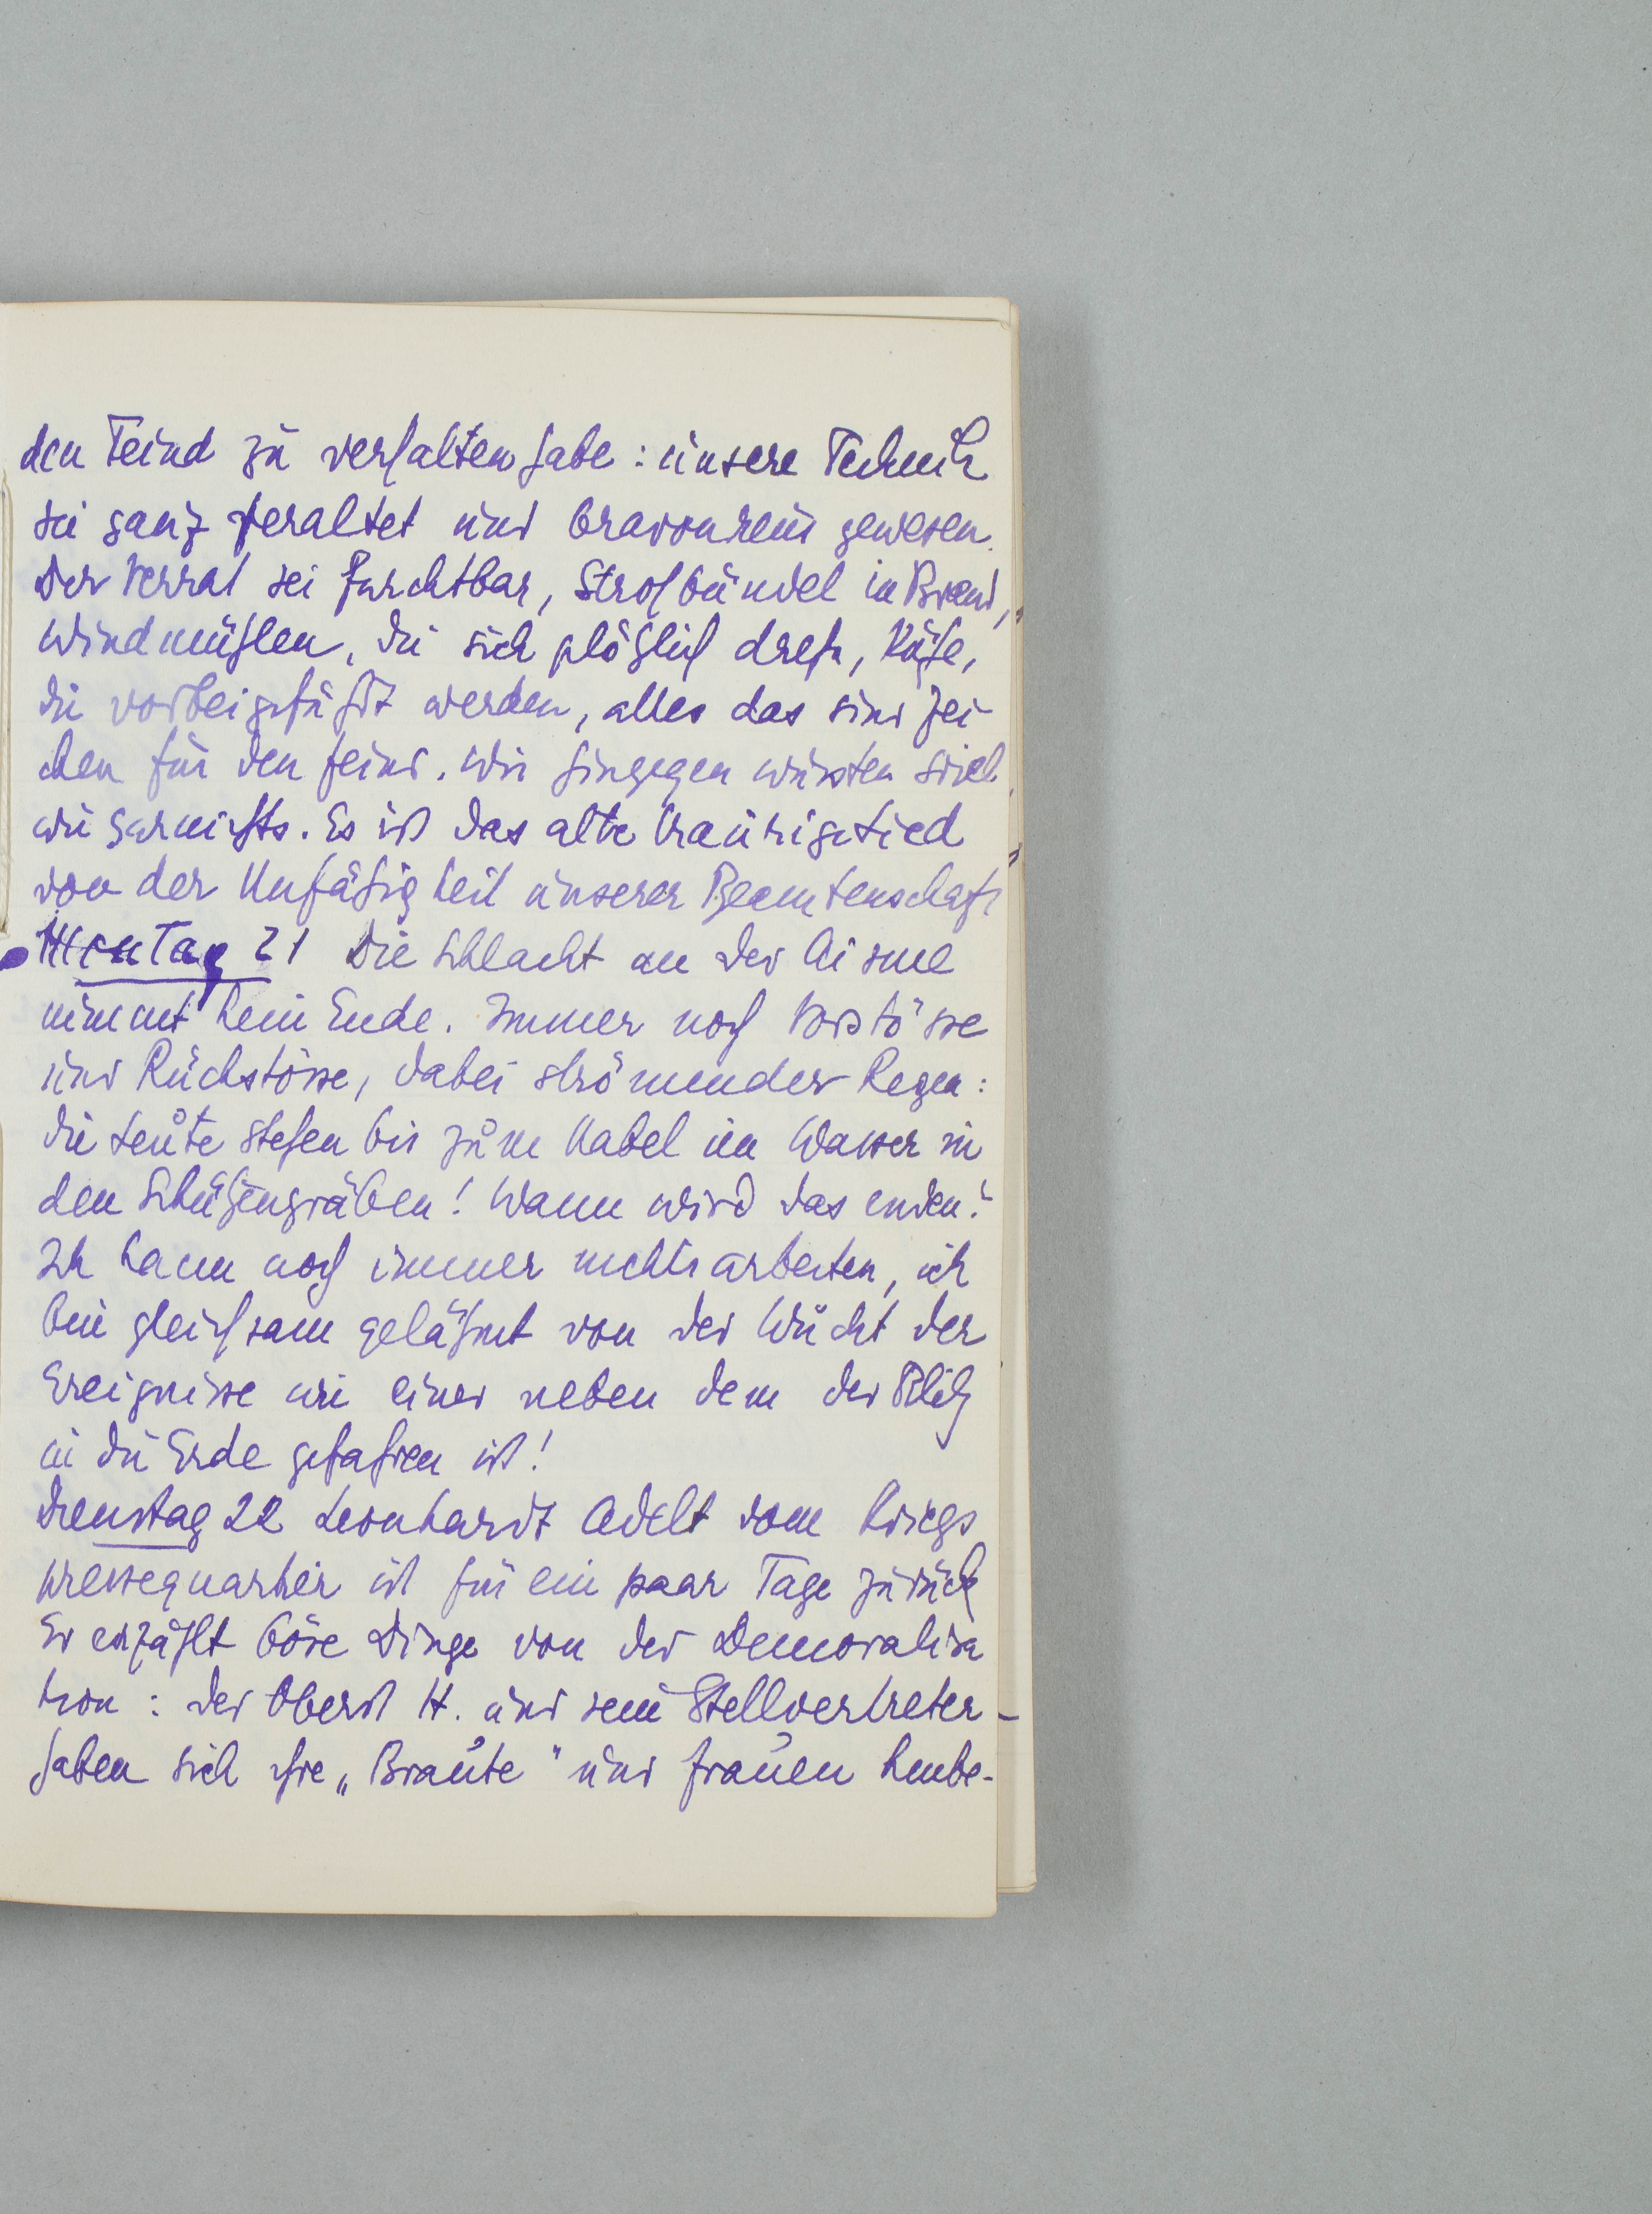 den Feind zu verhalten habe: unsere Technik
sei ganz veraltet und bravourens gewesen.
Der Verrat sei furchtbar, Strohbündel in Brand,
Windmühlen, die sich plötzlich drehn, Kühe,
die vorbeigeführt werden, alles das sind Zei
chen für den Feind. Wir hingegen wüssten soviel
wie garnichts. Es ist das alte traurige Lied
von der Unfähigkeit unserer Beamtenschaft
Montag 21 Die Schlacht an der Aisne
nimmt kein Ende. Immer noch Vorstösse
und Rückstösse, dabei strömender Regen:
die Leute stehen bis zum Nabel im Wasser in
den Schützengräben! Wann wird das enden?
Ich kann noch immer nichts arbeiten, ich
bin gleichsam gelähmt von der Wucht der
Ereignisse wie einer neben dem der Blitz
in die Erde gefahren ist!
Dienstag 22 Leonhardt Adelt vom Kriegs
pressequartier ist für ein paar Tage zurück
Er erzählt böse Dinge von der Demoralisa
tion: der Oberst H. und sein Stellvertreter
haben sich ihre „Bräute" und Frauen hinbe-